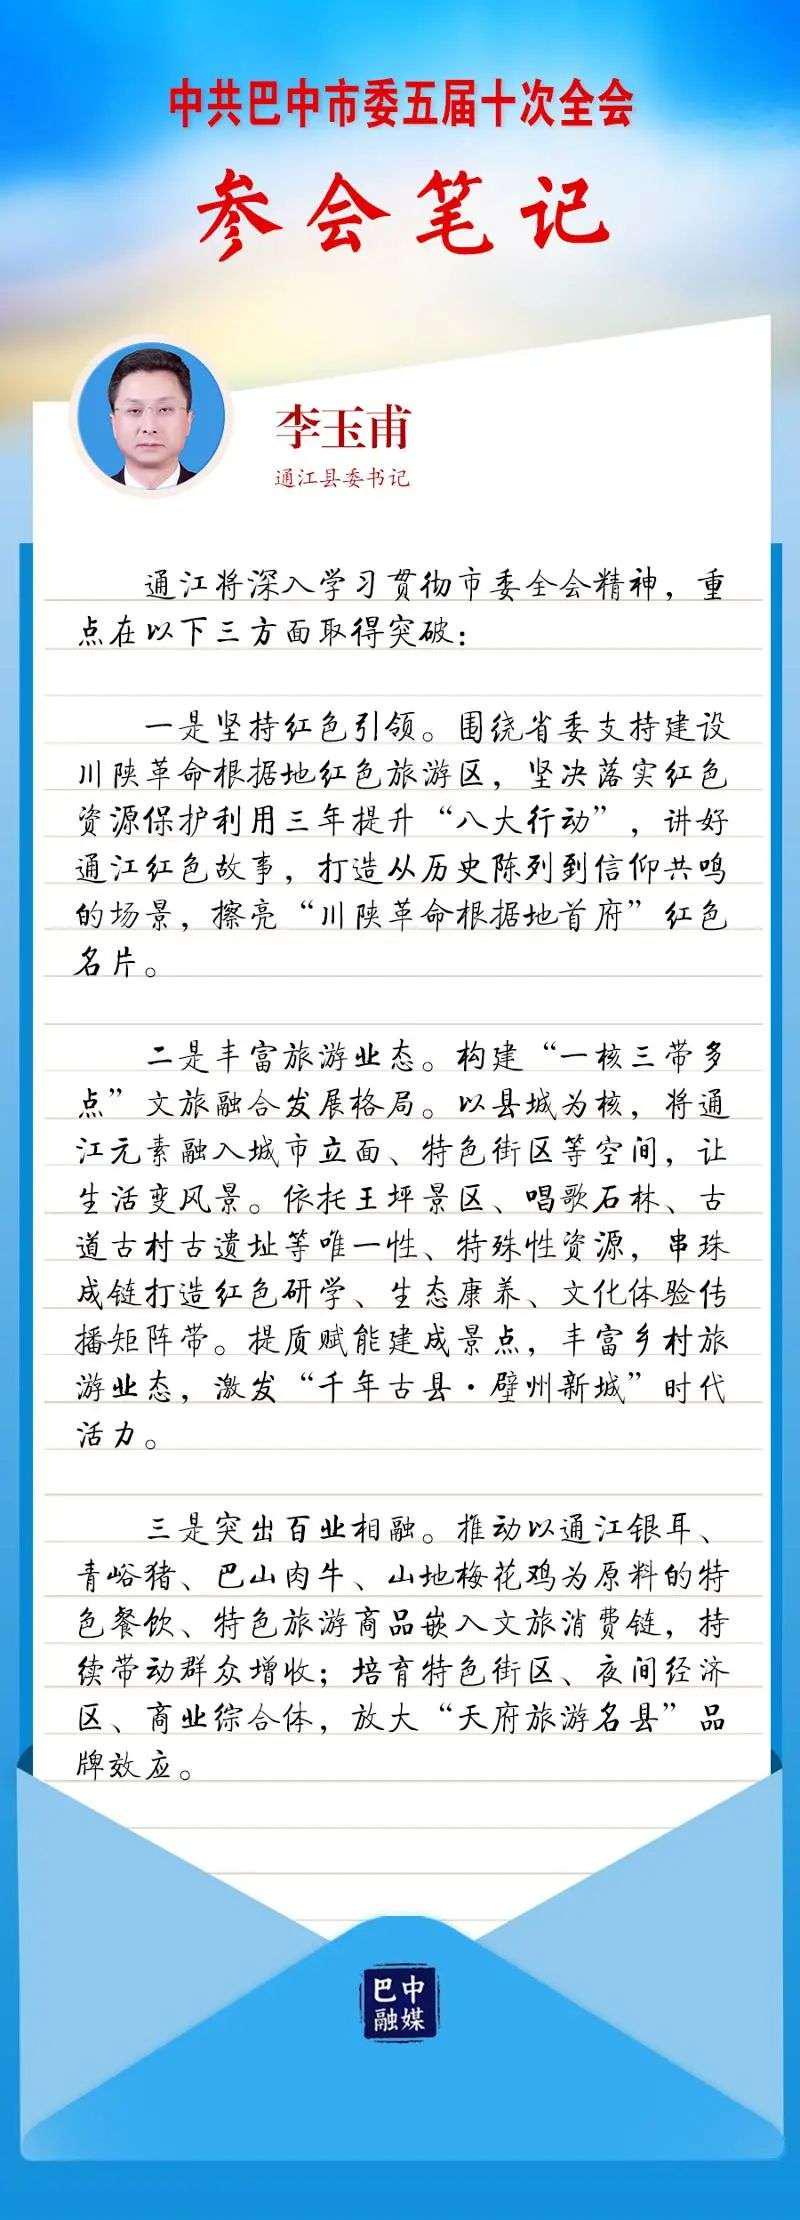 中共巴中市委五届十次全会
参会笔记
李玉甫
通江县委书记
通江将深入学习贯彻市委全会精神，重
点在以下三方面取得突破：
一是坚持红色引领。围绕省委支持建设
川陕革命根据地红色旅游区，坚决落实红色
资源保护利用三年提升“八大行动”，讲好
通江红色故事，打造从历史陈列到信仰共鸣
的场景，擦亮“川陕革命根据地首府”红色
名片。
二是丰富旅游业态。构建“一核三带多
点”文旅融合发展格局。以县城为核，将通
江元素融入城市立面、特色街区等空间，让
生活变风景。依托王坪景区、唱歌石林、古
道古村古遗址等唯一性、特殊性资源，串珠
成链打造红色研学、生态康养、文化体验传
播矩阵带。提质赋能建成景点，丰富乡村旅
游业态，激发“千年古县·壁州新城”时代
活力。
三是突出百业相融。推动以通江银耳、
青峪猪、巴山肉牛、山地梅花鸡为原料的特
色餐饮、特色旅游商品嵌入文旅消费链，持
续带动群众增收；培育特色街区、夜间经济
区、商业综合体，放大“天府旅游名县”品
牌效应。
巴中
融媒